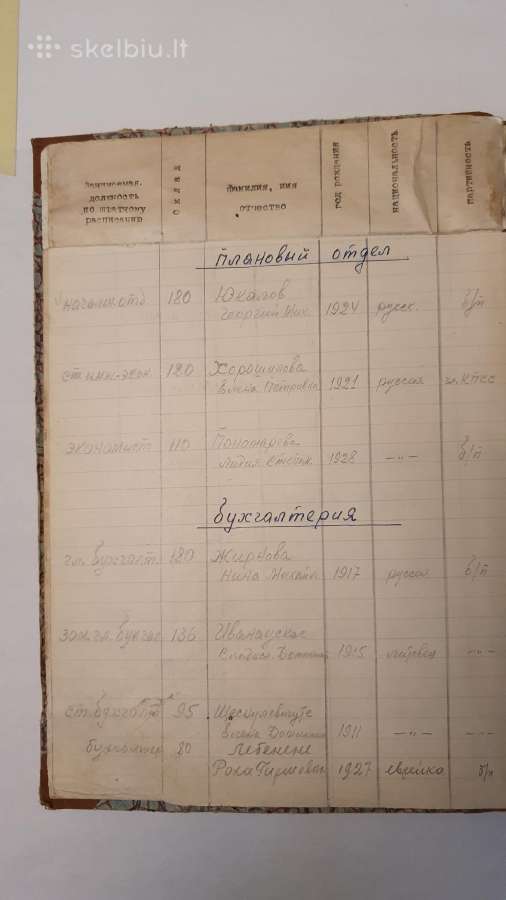 skelbiu.lt
Занимаемая
должность
по штатному
расписанию
оклад
Фамилия, имя
отчество
год рождения
национальность
партийность
Плановый отдел
начальн. отд. 180 Юкалов
Георгий Ник. 1924 русск. б/п
ст. инж-экон. 120 Хорошилова
Елена Петровна 1921 русская чл. КПСС
экономист 110 Пономарева
Лидия 1928 —"— б/п
бухгалтерия
гл. бухгалт. 180 Жирнова
Нина Михайл. 1917 русская б/п
зам. гл. бухгал. 136 Иванаускас
1915 литовец —"—
ст. бухгалт. 95
Елена 1911 —"— —"—
бухгалтер 80 Лебенене
Роха Гиршовна 1927 еврейка б/п